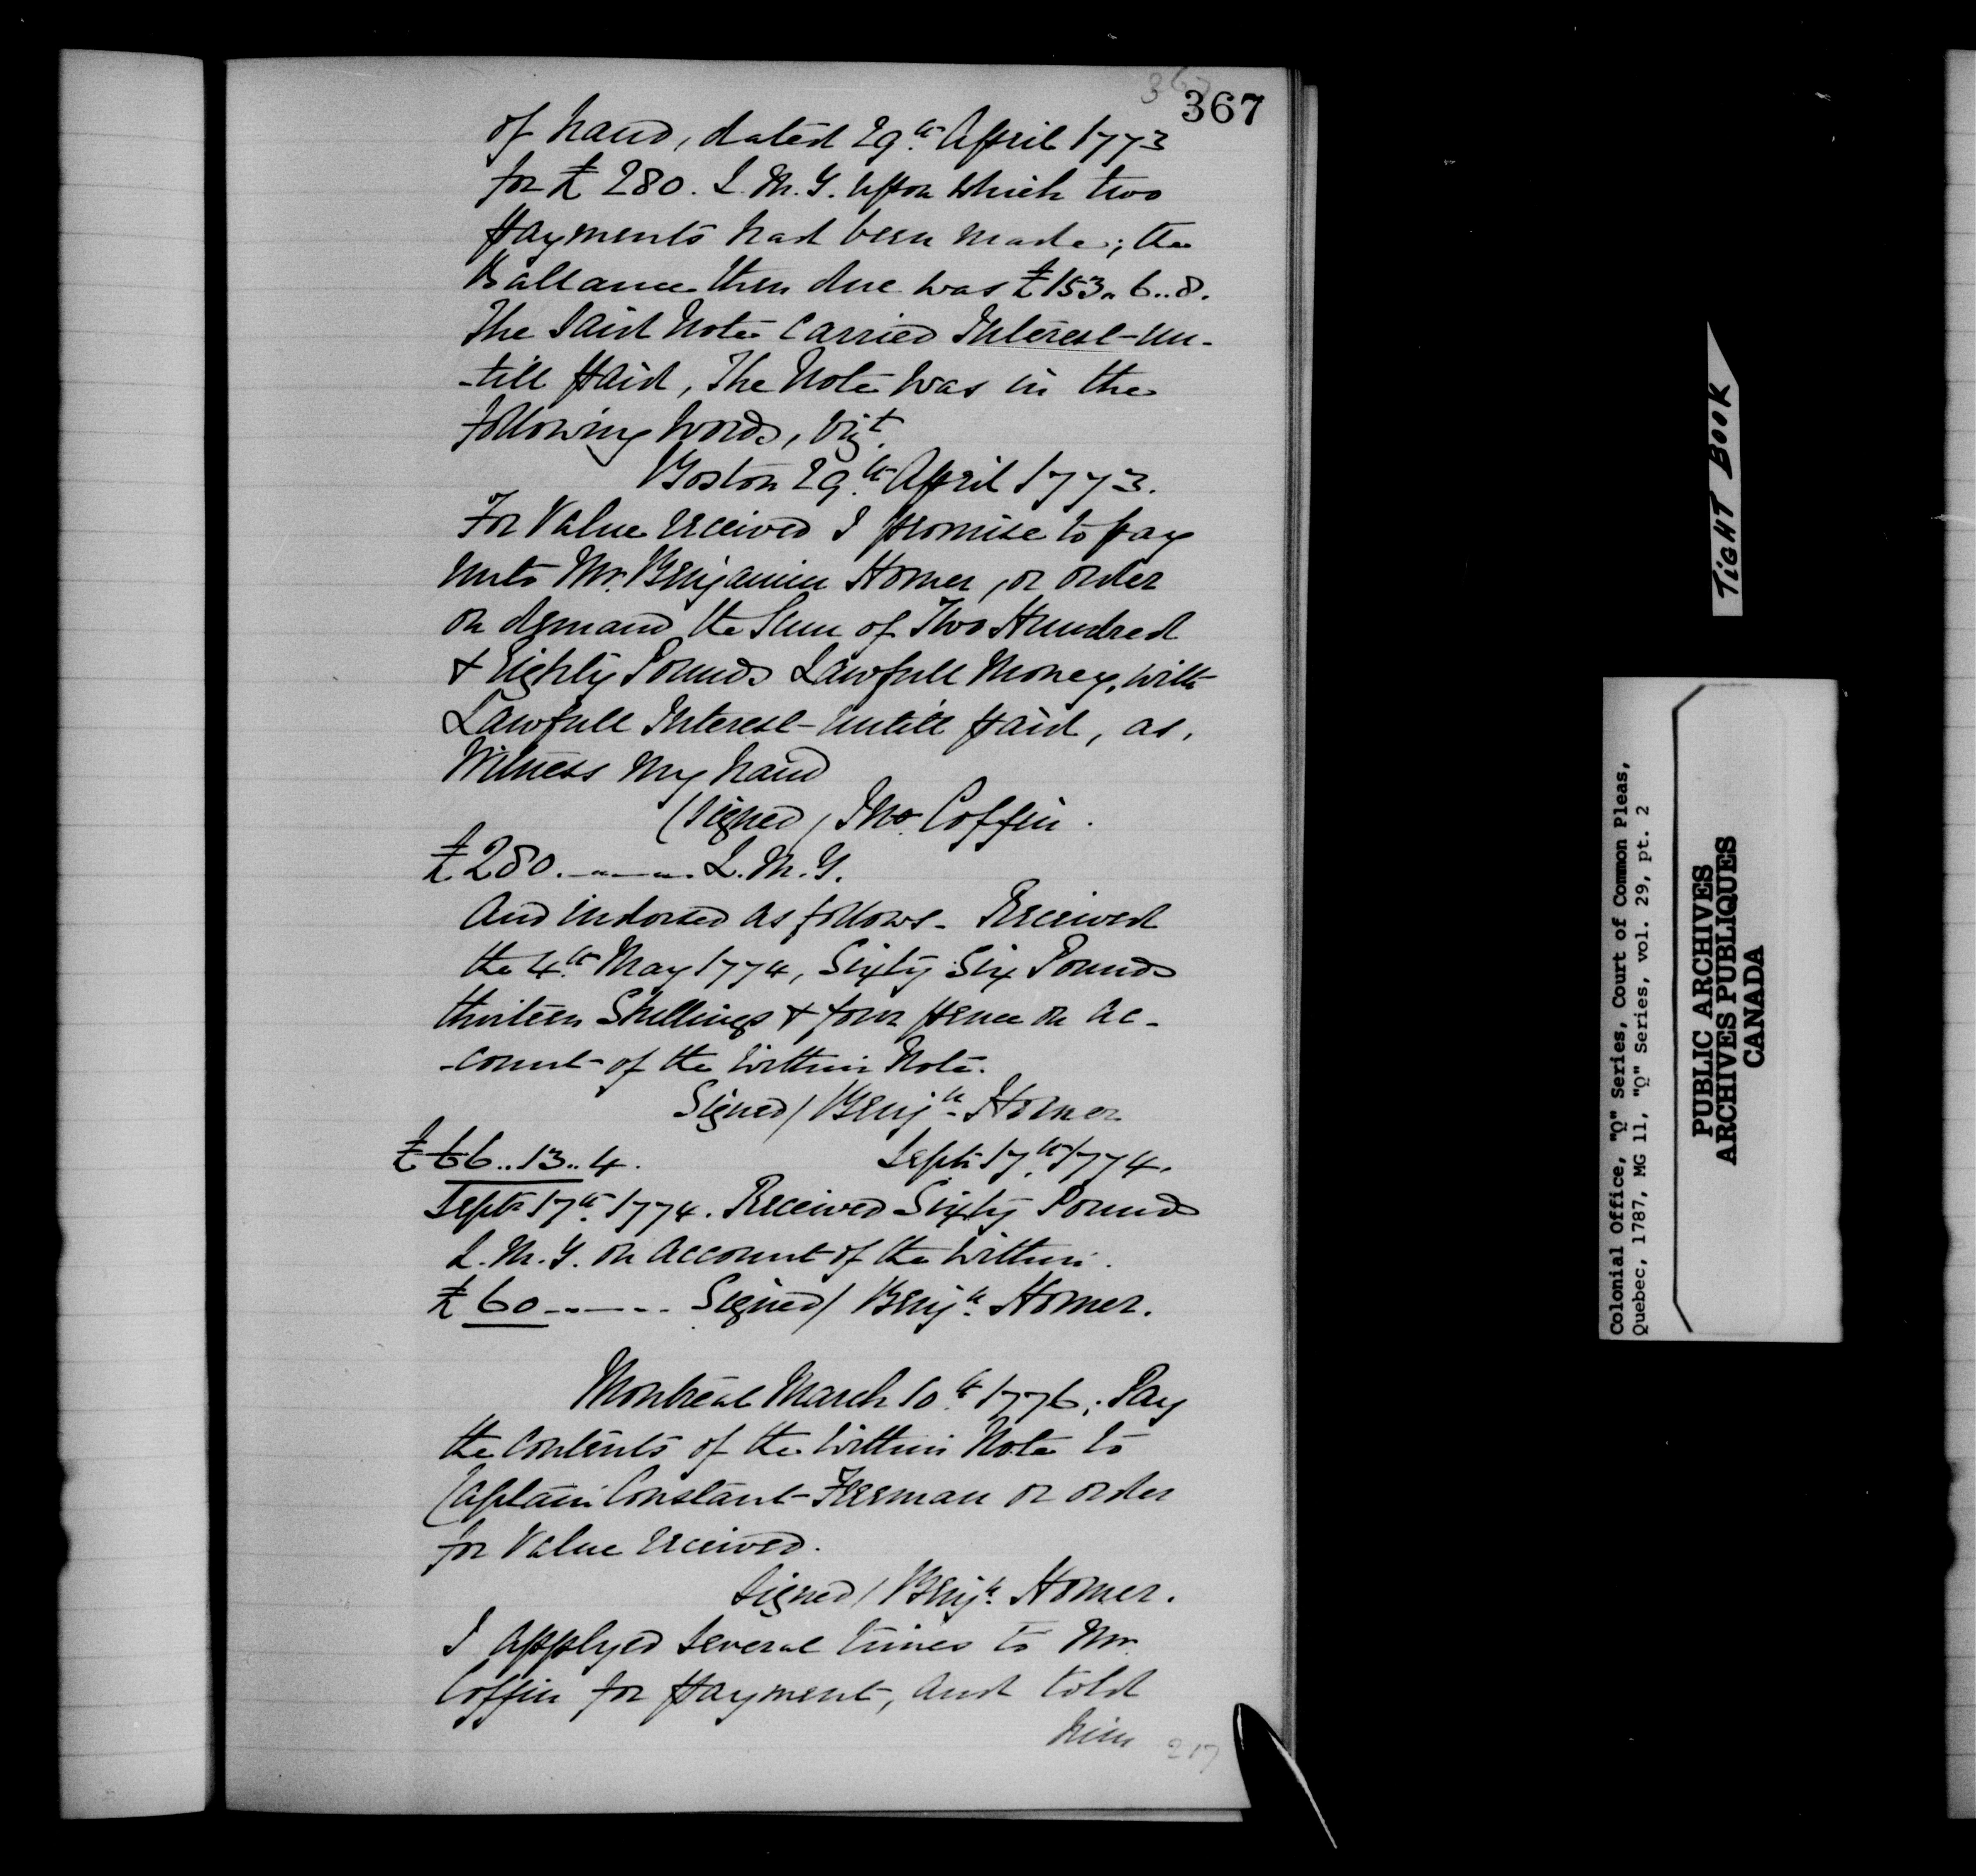 367
367
of hand, dated 29th April 1773
for £ 280. L. M. Y. upon which two
payments had been made; the
Ballance then due was £153.. 6.. 8.
The said Note carried Interest un-
-till paid, The Note was in the
following words, Vizt.
Boston 29th April 1773.
For Value received I promise to pay
unto Mr. Benjamin Homer, or order
on demand the Sum of Two Hundred
& Eighty Pounds Lawfull Money, with
Lawfull Interest untill paid, as,
Witness my hand
(signed / Tho. Coffin.
£ 280. ..—..—.. L. M. Y.
And indorsed as follows - Received
the 4th May 1774, Sixty Six Pounds
thirteen Shillings & four pence on ac-
-count of the within Note.
Signed / Benjn. Homer
£ 66.. 13.. 4. Septr 17th 1774.
Septr 17th 1774. Received Sixty Pounds
L. M. Y. on account of the within.
£ 60 ..—.. Signed / Benjn. Homer.
Montreal March 10th 1776; Pay
the contents of the within Note to
Captain Constant Freeman or order
for Value received.
Signed / Benjn. Homer.
I applyed several times to Mr.
Coffin for payment, and told
him
217
TIGHT BOOK
Colonial Office, "Q" Series, Court of Common Pleas,
Quebec, 1787, MG 11, "Q" Series, vol. 29, pt. 2
PUBLIC ARCHIVES
ARCHIVES PUBLIQUES
CANADA